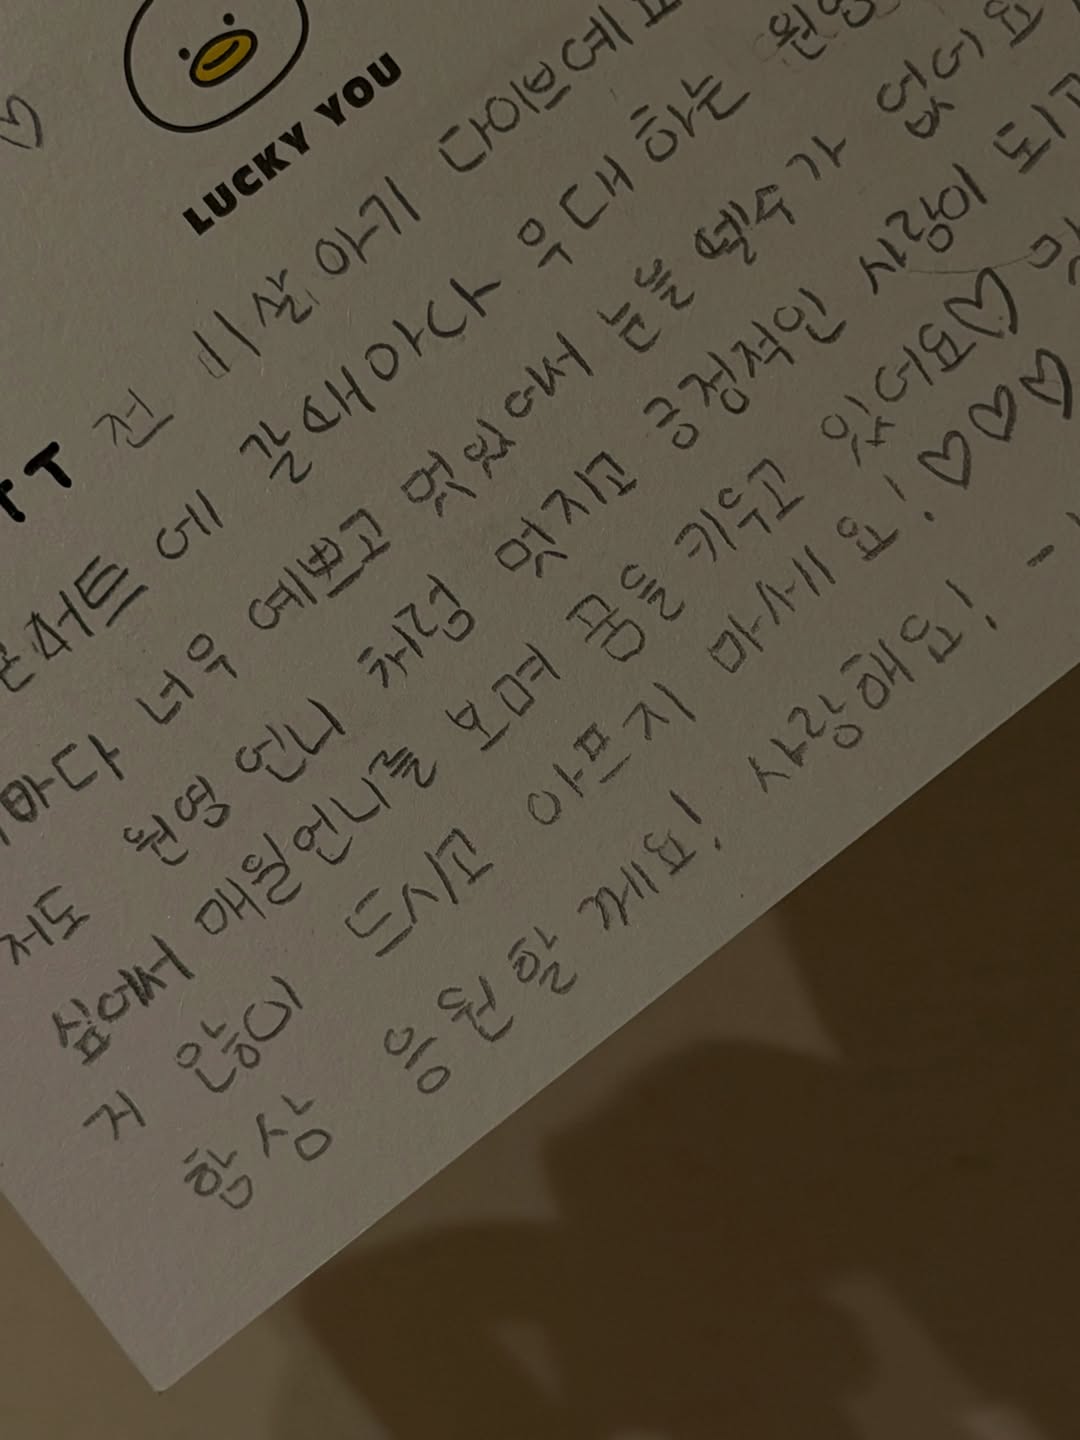 LUCKY YOU
전 11살 아기 다이브예요
콘서트에 갈때마다 무대 하는 원영
마다 너무 예쁘고 멋있어서 눈을 뗄수가 없어요
저도 원영 언니 처럼 멋지고 긍정적인 사람이 되고
싶어서 매일언니를 보며 꿈을 키우고 있어요♡
거 많이 드시고 아프지 마세요! ♡♡♡
항상 응원할께요! 사랑해요! -